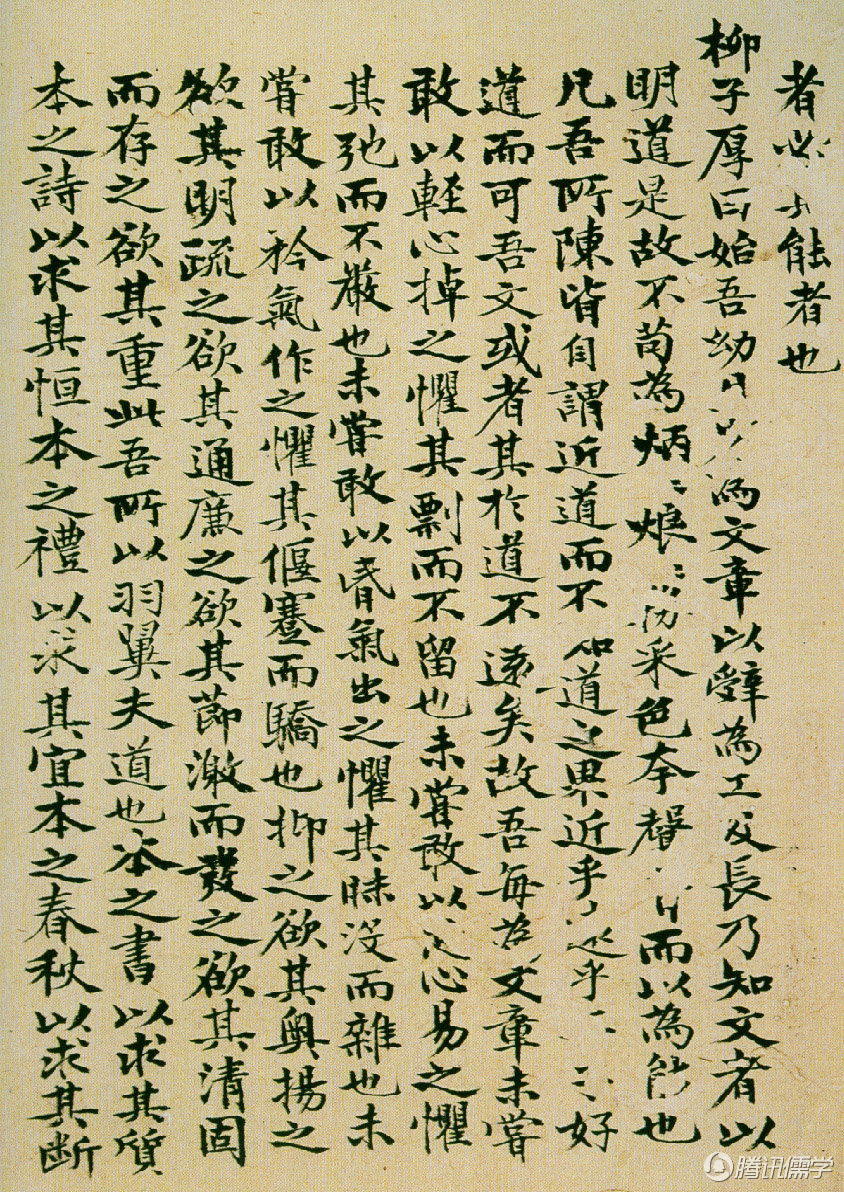 者必能者也
柳子厚曰始吾幼為文章以辭為工及長乃知文者以
明道是故不苟為炳〻烺〻采色夸聲而以為能也
凡吾所陳皆自謂近道而不知道之果近乎遠乎好
道而可吾文或者其於道不遠矣故吾每為文章未嘗
敢以軽心掉之懼其剽而不留也未嘗敢以心易之懼
其弛而不嚴也未嘗敢以昏氣出之懼其昧沒而雜也未
嘗敢以矜氣作之懼其偃蹇而驕也抑之欲其奧揚之
欲其明疏之欲其通廉之欲其節激而發之欲其清固
而存之欲其重此吾所以羽翼夫道也本之書以求其質
本之詩以求其恒本之禮以求其宜本之春秋以求其断
腾讯儒学